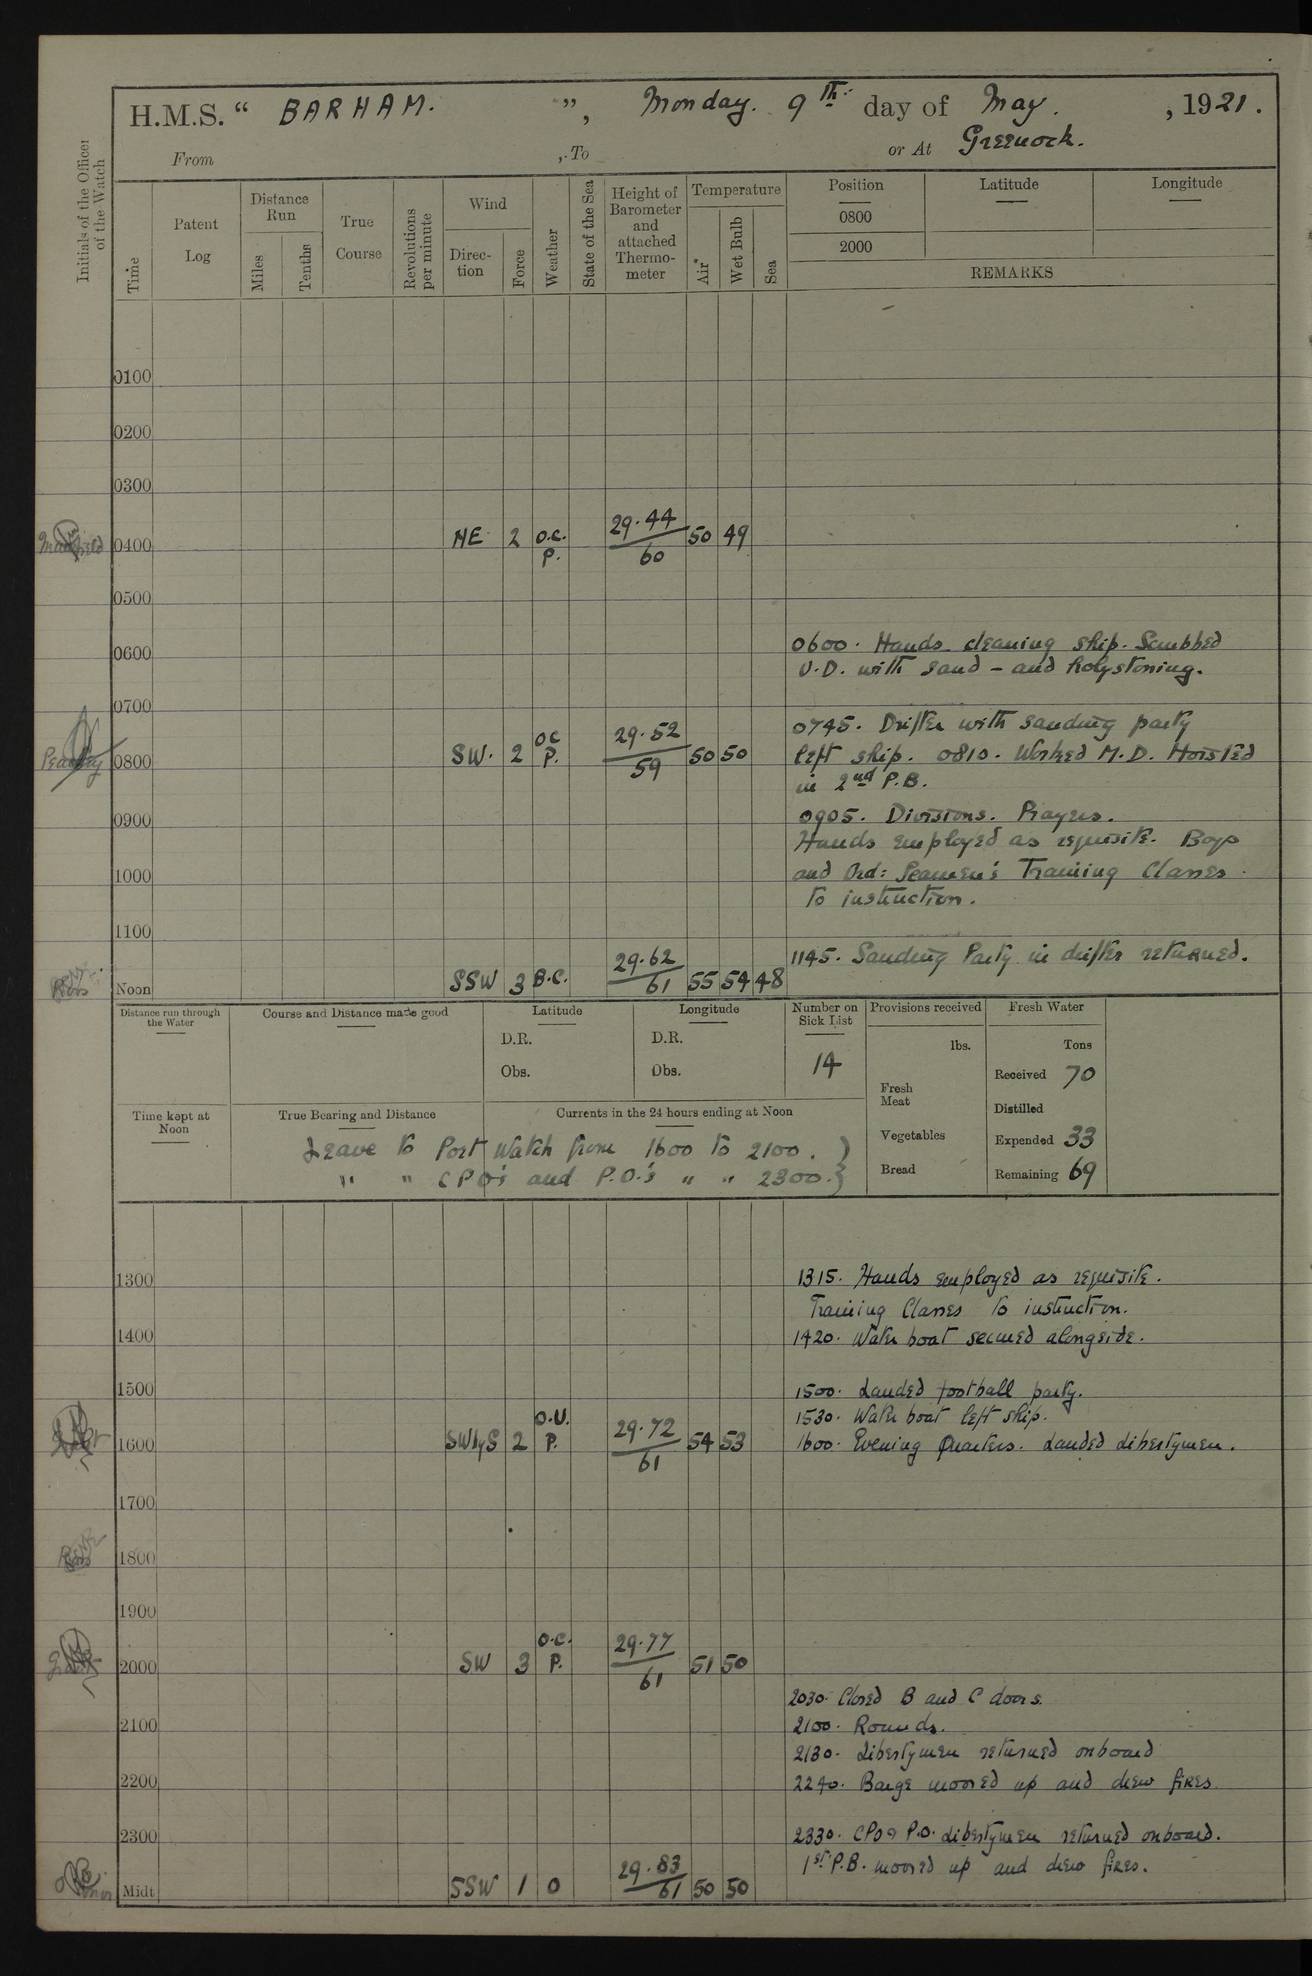 H.M.S. “ BARHAM. ”, Monday. 9th. day of May. , 1921.
From , To or At Greenock.
Initials of the Officer of the Watch
Time
Patent Log
Distance Run
Miles
Tenths
True Course
Revolutions per minute
Wind
Direction
Force
Weather
State of the Sea
Height of Barometer and attached Thermometer
Temperature
Air
Wet Bulb
Sea
Position Latitude Longitude
0800
2000
REMARKS
0100
0200
0300
0400 NE 2 O.C. P. 29.44 60 50 49
0500
0600
0600. Hands cleaning ship. Scrubbed
U.D. with sand - and holystoning.
0700
0745. Drifter with sanding party
0800 SW. 2 OC P. 29.52 59 50 50
left ship. 0810. Worked M.D. Hoisted
in 2nd P.B.
0900
0905. Divisions. Prayers.
Hands employed as requisite. Boys
1000
and Ord: Seamen's Training Classes
to instruction.
1100
1145. Sanding Party in drifter returned.
Noon SSW 3 B.C. 29.62 61 55 54 48
Distance run through the Water
Course and Distance made good
Latitude
D.R.
Obs.
Longitude
D.R.
Obs.
Number on Sick List
14
Provisions received
lbs.
Fresh Meat
Vegetables
Bread
Fresh Water
Tons
Received 70
Distilled
Expended 33
Remaining 69
Time kept at Noon
True Bearing and Distance
Currents in the 24 hours ending at Noon
Leave to Port Watch from 1600 to 2100. }
" " CPO's and P.O.'s " " 2300. }
1300
1315. Hands employed as requisite.
Training Classes to instruction.
1400
1420. Water boat secured alongside.
1500
1500. Landed football party.
1530. Water boat left ship.
1600 SWbyS 2 O.U. P. 29.72 61 54 53
1600. Evening Quarters. Landed libertymen.
1700
1800
1900
2000 SW 3 O.C. P. 29.77 61 51 50
2030. Closed B and C doors.
2100
2100. Rounds.
2130. Libertymen returned onboard
2200
2240. Barge moored up and drew fires
2300
2330. CPO & P.O. libertymen returned onboard.
1st P.B. moored up and drew fires.
Midt SSW 1 O 29.83 61 50 50